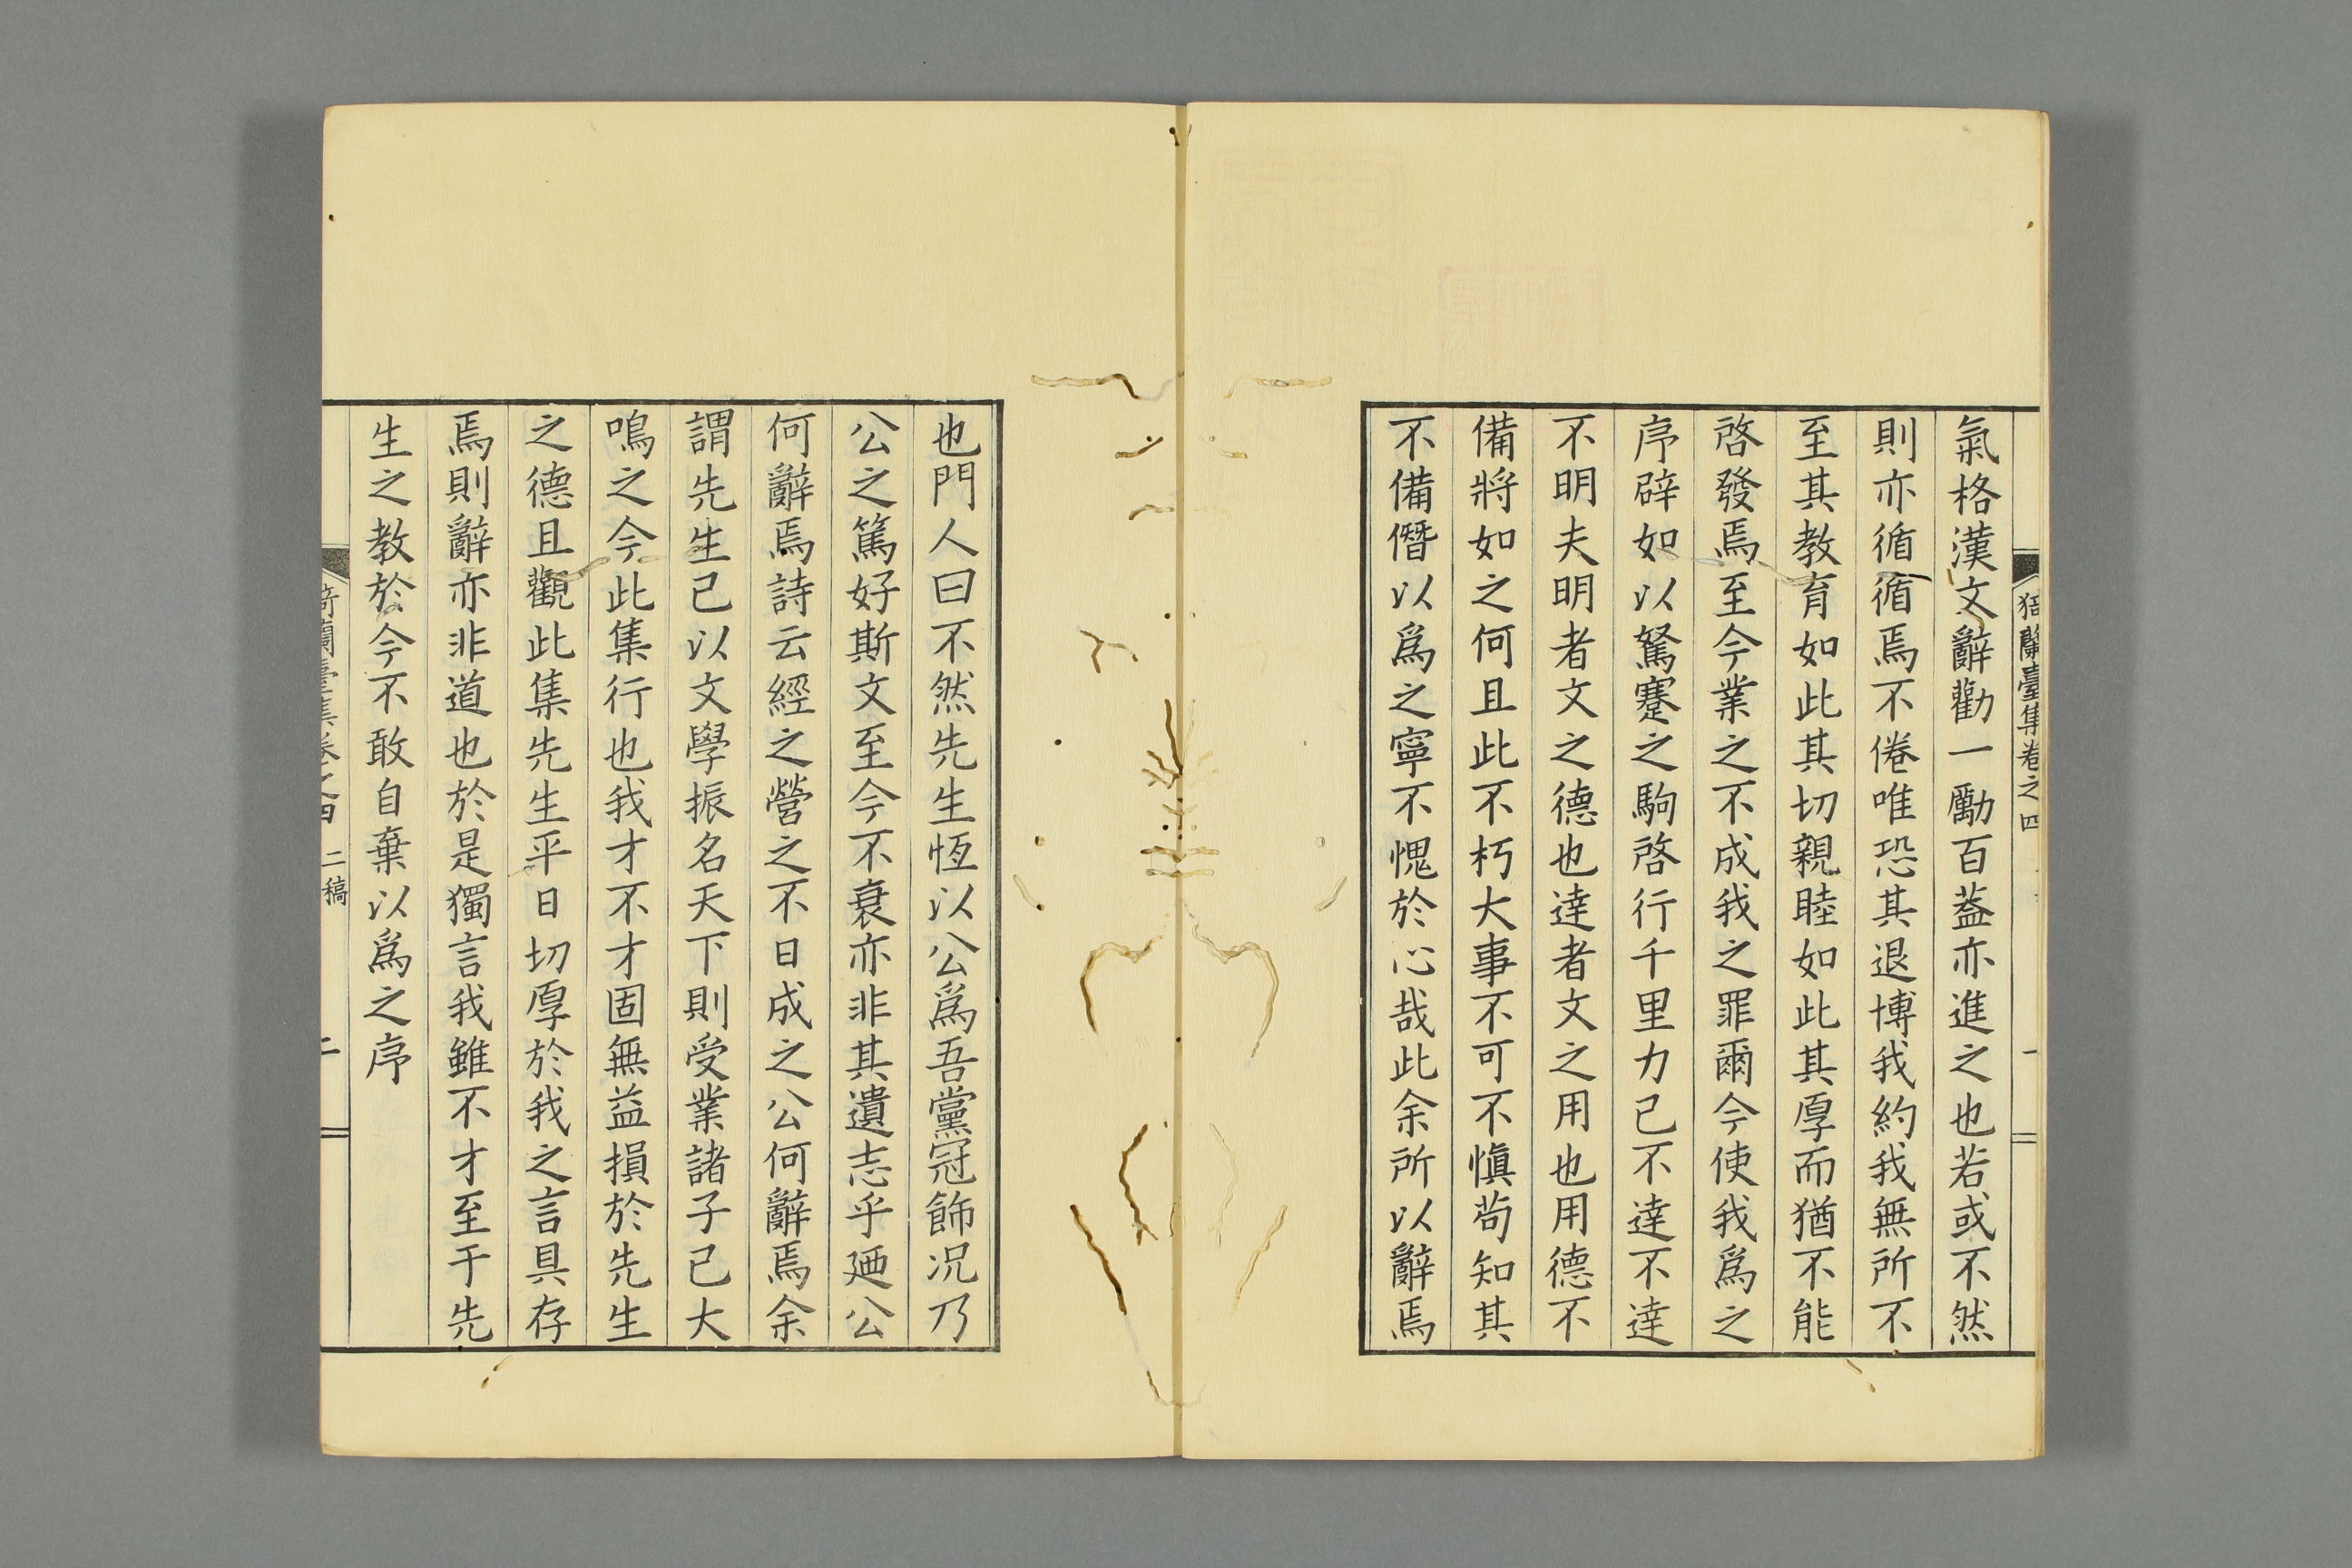 猗蘭臺集卷之四
一
氣格漢文辭勸一勵百葢亦進之也若或不然
則亦循循焉不倦唯恐其退博我約我無所不
至其教育如此其切親睦如此其厚而猶不能
啓發焉至今業之不成我之罪爾今使我爲之
序辟如以駑蹇之駒啓行千里力已不達不達
不明夫明者文之德也達者文之用也用德不
備將如之何且此不朽大事不可不愼茍知其
不備僭以爲之寧不愧於心哉此余所以辭焉
也門人曰不然先生恆以公爲吾黨冠飾况乃
公之篤好斯文至今不衰亦非其遺志乎廼公
何辭焉詩云經之營之不日成之公何辭焉余
謂先生已以文學振名天下則受業諸子已大
鳴之今此集行也我才不才固無益損於先生
之德且觀此集先生平日切厚於我之言具存
焉則辭亦非道也於是獨言我雖不才至于先
生之教於今不敢自棄以爲之序
猗蘭臺集卷之四 二稿
二